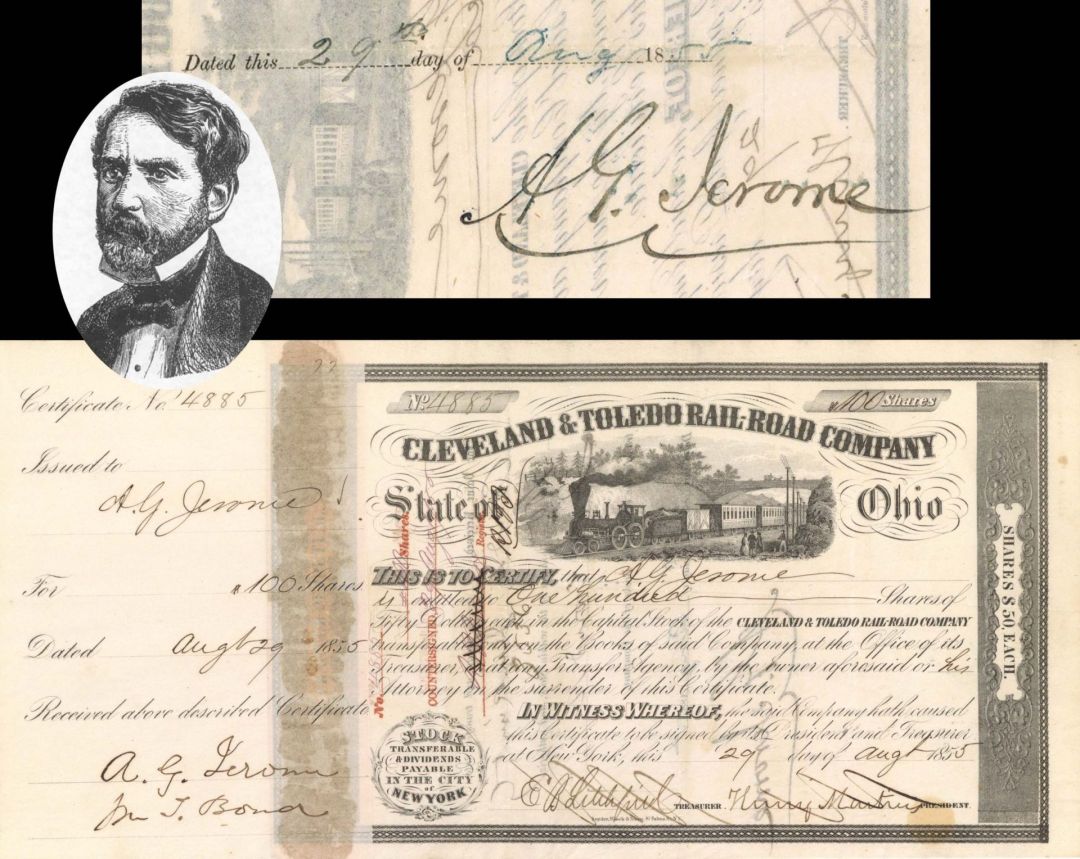 Dated this 29th day of Aug 1855
A. G. Jerome
Certificate No. 4885
Issued to
A. G. Jerome
For 100 Shares
Dated Augt 29 1855
Received above described Certificate
A. G. Jerome
T. Bond
No. 4885
100 Shares
CLEVELAND & TOLEDO RAIL-ROAD COMPANY
State of Ohio
THIS IS TO CERTIFY, that A. G. Jerome
is entitled to One hundred Shares of
Fifty Dollars each in the Capital Stock of the CLEVELAND & TOLEDO RAIL-ROAD COMPANY
transferable only on the Books of said Company, at the Office of its
Treasurer, or at any Transfer Agency, by the owner aforesaid or his
Attorney on the surrender of this Certificate.
IN WITNESS WHEREOF, the said Company hath caused
this Certificate to be signed by its President and Treasurer
at New York, this 29 day of Augt 1855
TREASURER. Henry PRESIDENT.
STOCK
TRANSFERABLE
& DIVIDENDS
PAYABLE
IN THE CITY
of
NEW YORK
SHARES $50 EACH.
Shares
COUNTERSIGNED
No.